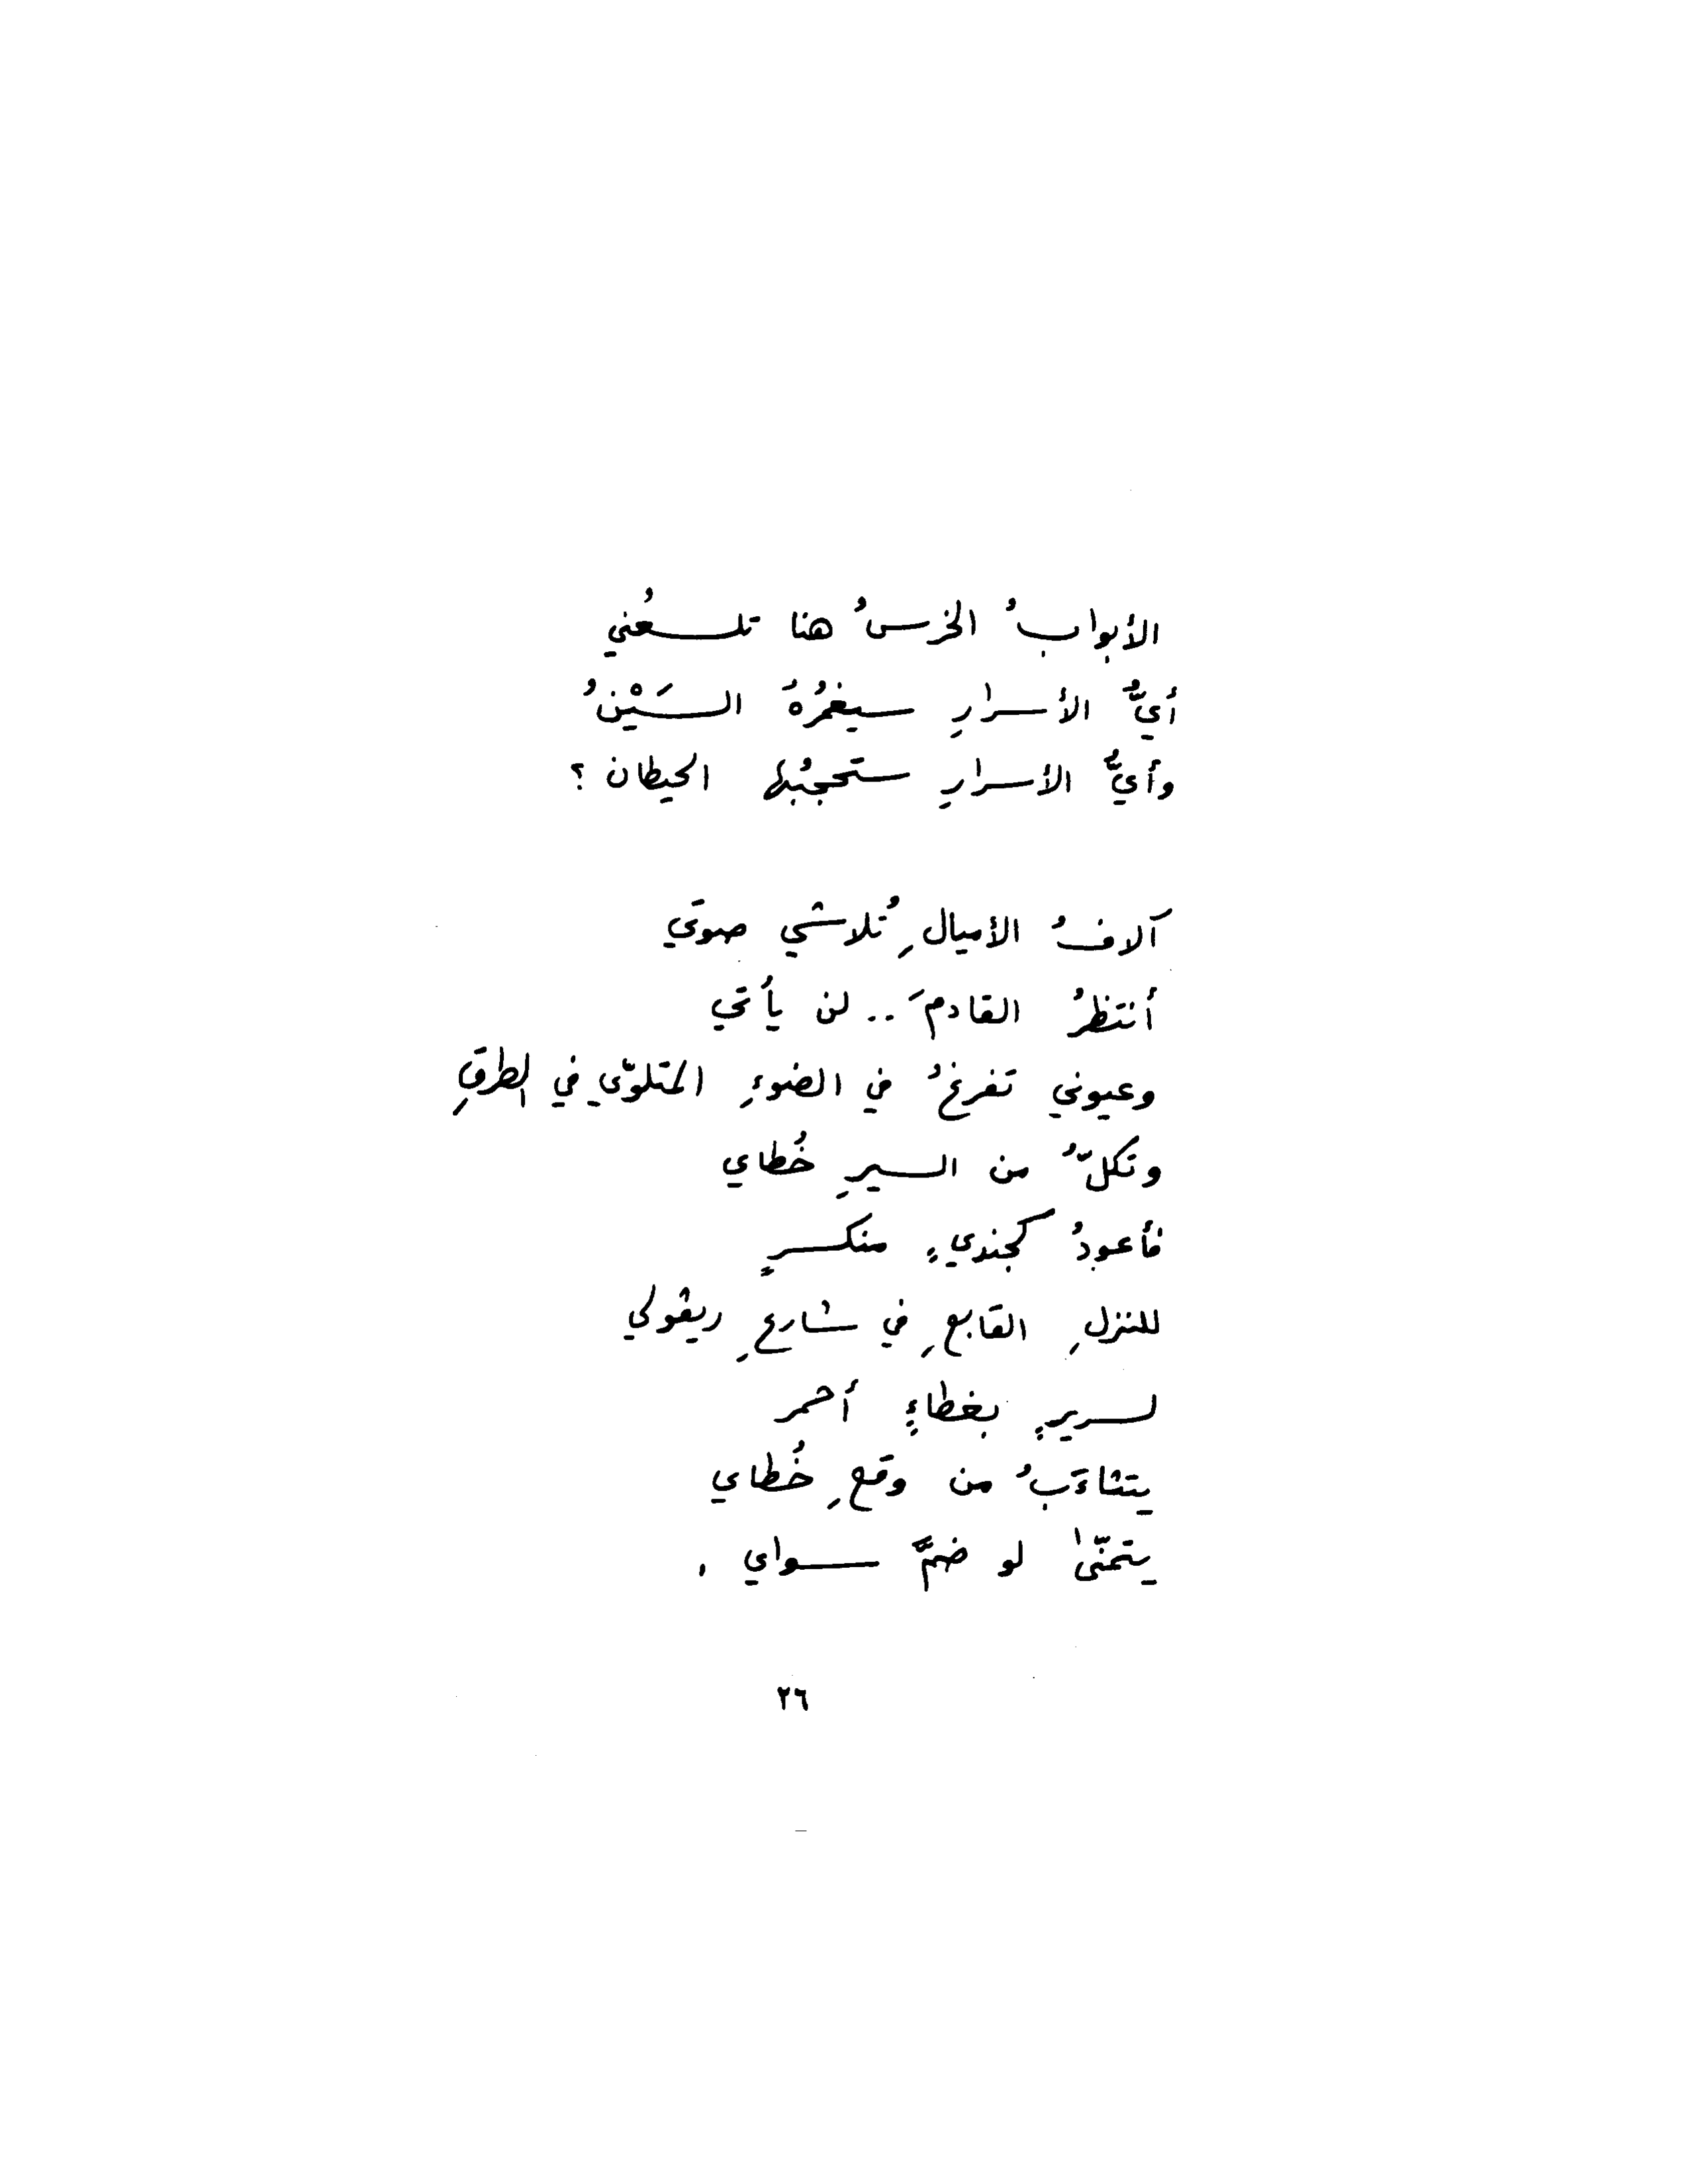 الأبوابُ الخرسُ هنا تلسعُني
أيُّ الأسرارِ سيغمُرُهُ السَيْنُ
وأيُّ الأسرارِ ستحجبُها الحيطان ؟
آلافُ الأميالِ تُلاشي صوتي
أنتظرُ القادمَ .. لن يأتي
وعيوني تفرغُ في الضوءِ المتلوّي في الطرقِ
وتكلُّ من السيرِ خُطاي
فأعودُ كجنديٍ منكسرٍ
للنزلِ القابعِ في شارعِ ريڤولي
لسريرٍ بغطاءٍ أحمر
يتثاءَبُ من وقعِ خُطاي
يتمنّىٰ لو ضمَّ سواي .
٢٦